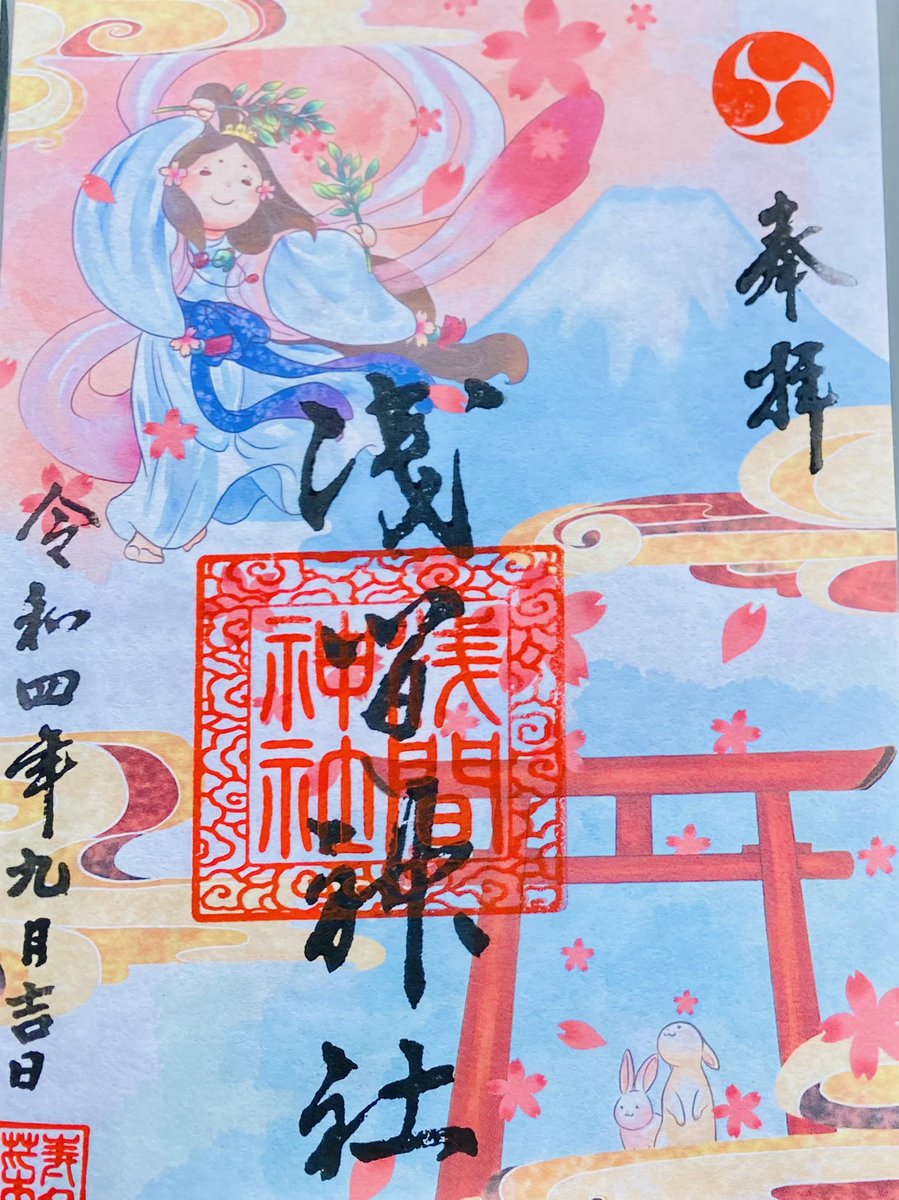 奉拝
浅間神社
浅間
神社
令和四年九月吉日